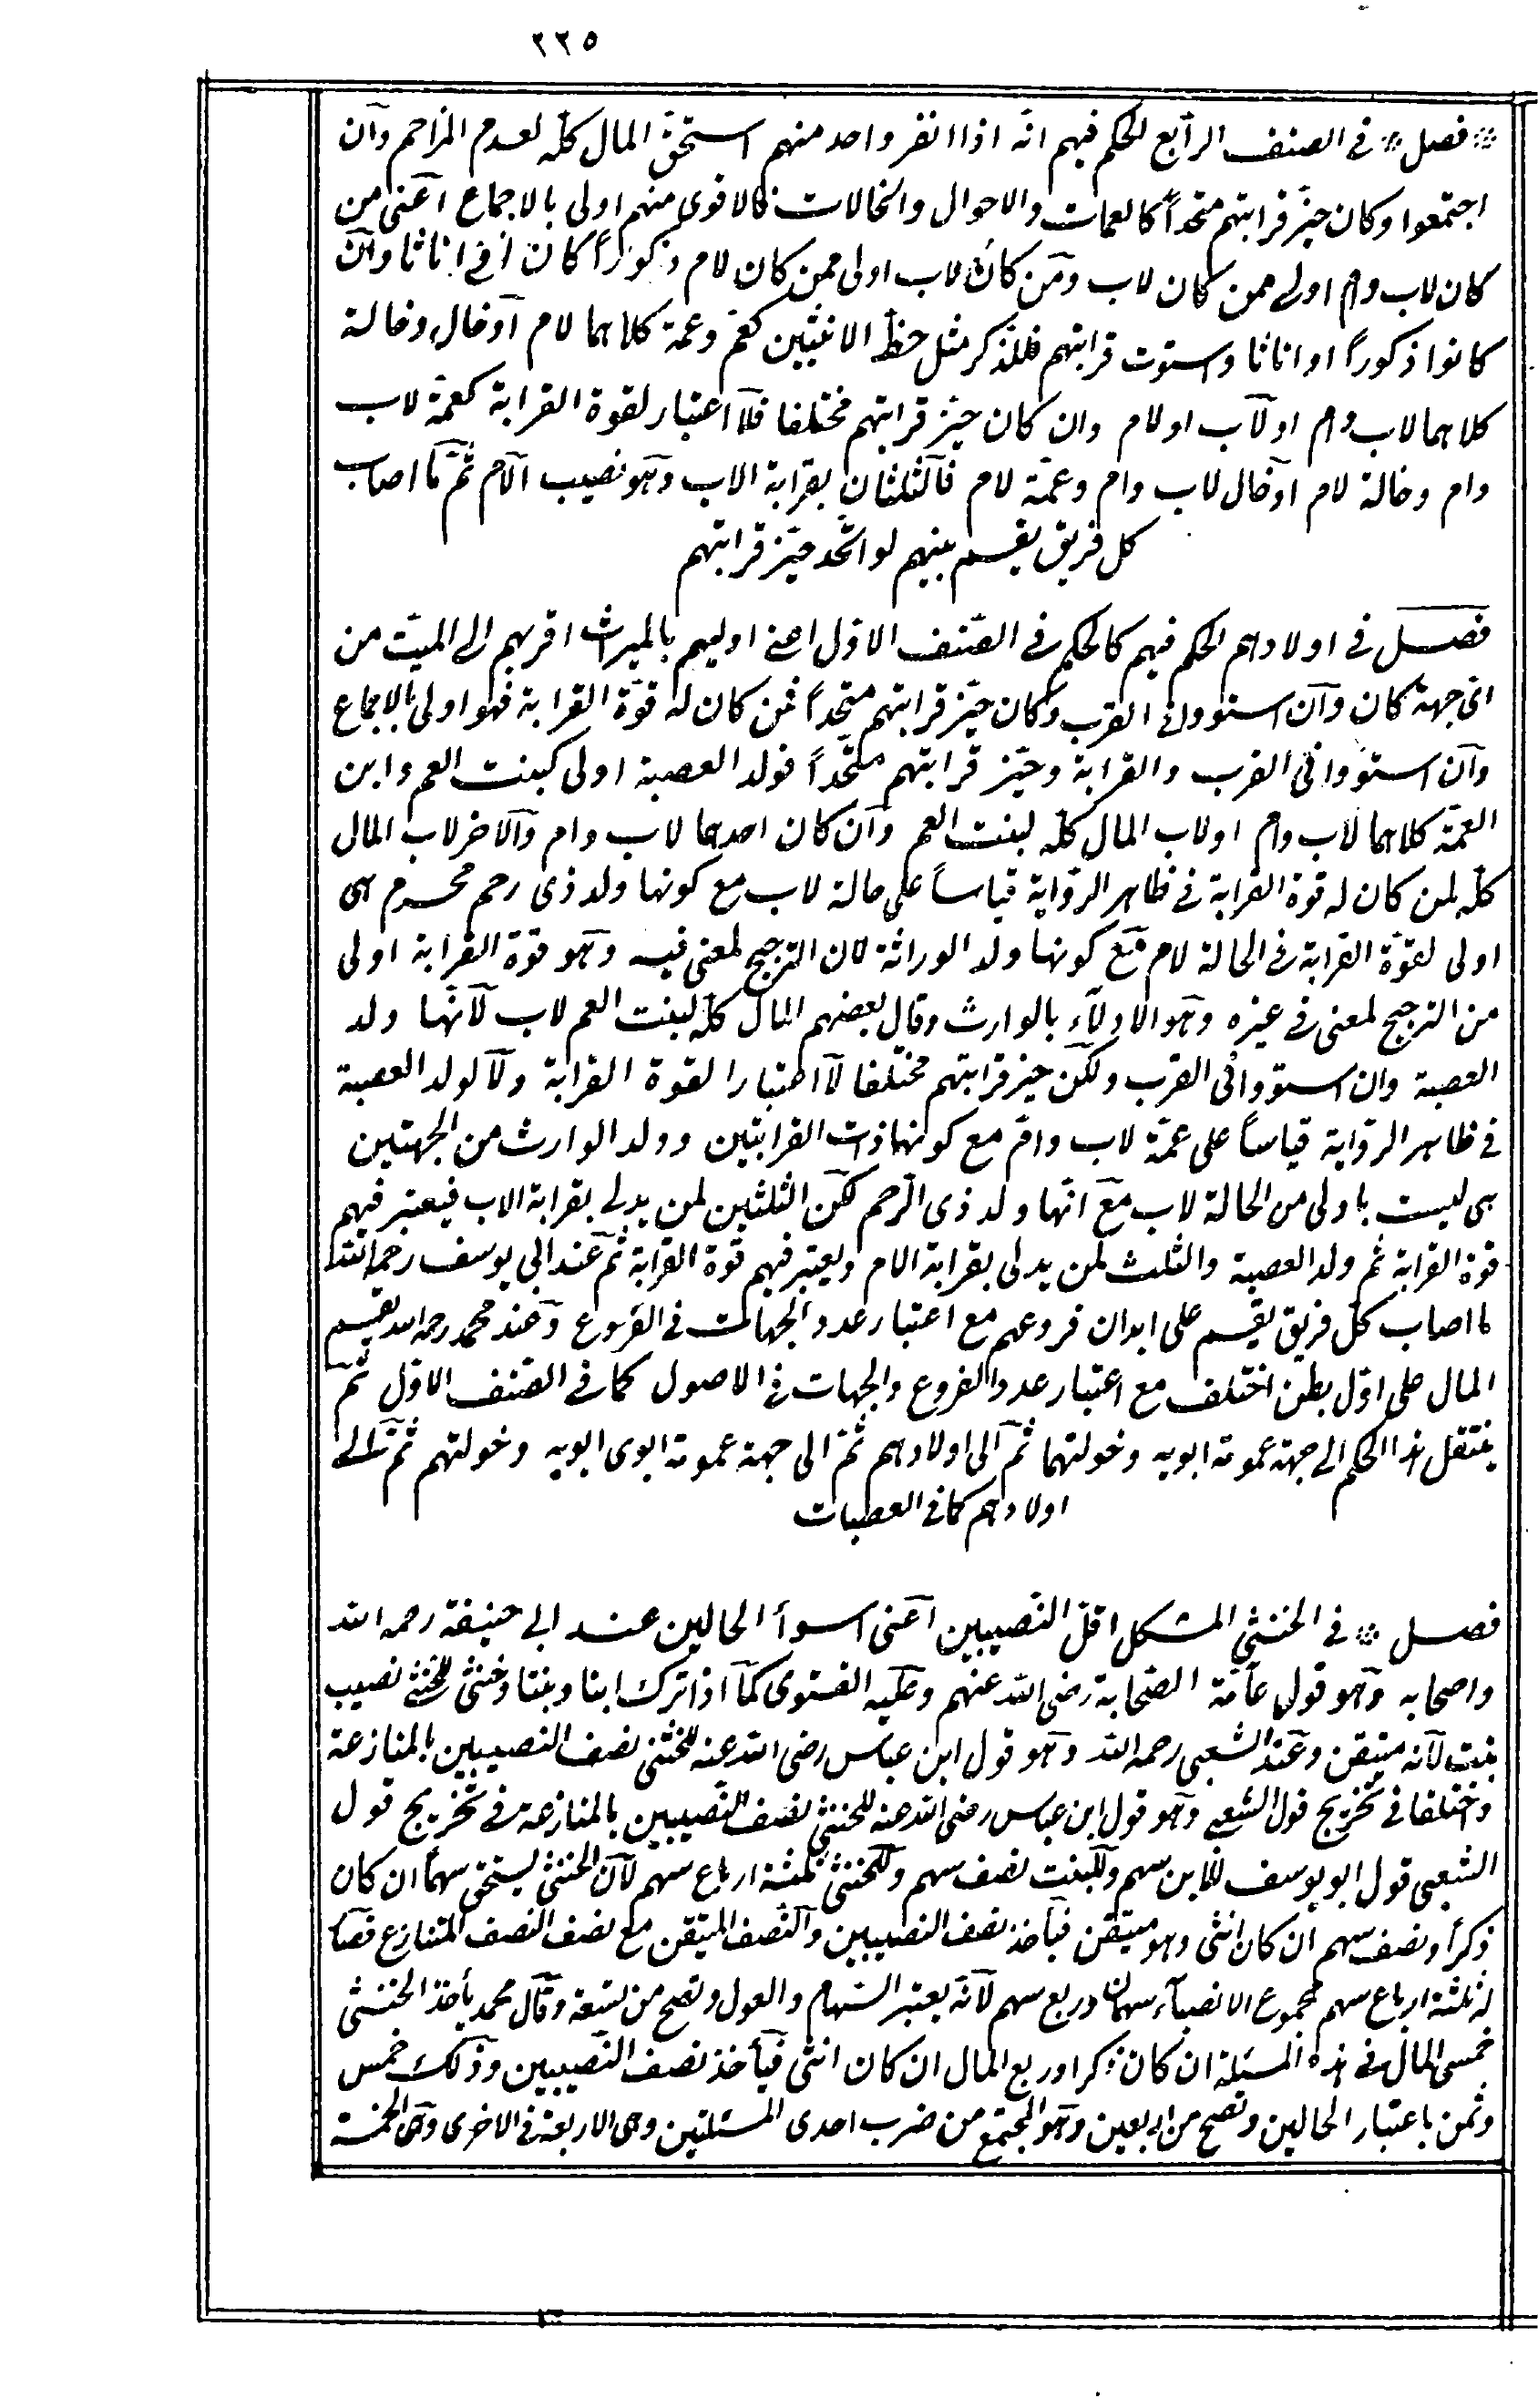 ٢٢٥
* فصل * فى الصنف الرابع الحكم فيهم انه اذا انفر واحد منهم استحق المال كله لعدم المزاحم وان
اجتمعوا وكان حيز قرابتهم متحداً كالعمات والاحوال والخالات فالاقوى منهم اولى بالاجماع اعنى من
كان لاب وام اولى ممن كان لاب ومن كان لاب اولى ممن كان لام ذكوراً كان او اناثا وان
كانوا ذكوراً او اناثا واستوت قرابتهم فللذكر مثل حظ الانثيين كعم وعمة كلاهما لام او خال وخالة
كلاهما لاب وام او لاب او لام وان كان حيز قرابتهم مختلفا فلا اعتبار لقوة القرابة كعمة لاب
وام وخالة لام او خال لاب وام وعمة لام فالثلثان بقرابة الاب وهو نصيب الام ثم ما اصاب
كل فريق يقسم بينهم لو اتحد حيز قرابتهم
فصل فى اولادهم الحكم فيهم كالحكم فى الصنف الاول اعنى اوليهم بالميراث اقربهم الى الميت من
اى جهة كان وان استووا فى القرب وكان حيز قرابتهم متحداً فمن كان له قوة القرابة فهو اولى بالاجماع
وان استووا فى القرب والقرابة وحيز قرابتهم متحداً فولد العصبة اولى كبنت العم وابن
العمة كلاهما لاب وام او لاب المال كله لبنت العم وان كان احدهما لاب وام والاخر لاب المال
كله لمن كان له قوة القرابة فى ظاهر الرواية قياساً على حالة لاب مع كونها ولد ذى رحم محرم هى
اولى لقوة القرابة فى الحالة لام مع كونها ولد الوراثة لان الترجيح لمعنى فيه وهو قوة القرابة اولى
من الترجيح لمعنى فى غيره وهو الاولاء بالوارث وقال بعضهم المال كله لبنت العم لاب لانها ولد
العصبة وان استووا فى القرب ولكن حيز قرابتهم مختلفا لا اعتبارا لقوة القرابة ولا لولد العصبة
فى ظاهر الرواية قياساً على عمة لاب وام مع كونها ذات القرابتين وولد الوارث من الجهتين
هى ليست باولى من الحالة لاب مع انها ولد ذى الرحم لكن الثلثين لمن يدلى بقرابة الاب فيعتبر فيهم
قوة القرابة ثم ولد العصبة والثلث لمن يدلى بقرابة الام ويعتبر فيهم قوة القرابة ثم عند ابى يوسف رحمه الله
ما اصاب كل فريق يقسم على ابدان فروعهم مع اعتبار عدد الجهات فى الفروع وعند محمد رحمه الله يقسم
المال على اول بطن اختلف مع اعتبار عدد الفروع والجهات فى الاصول كما فى الصنف الاول ثم
ينتقل هذا الحكم الى جهة عمومة ابويه وخولتهما ثم الى اولادهم ثم الى جهة عمومة ابوى ابويه وخولتهم ثم الى
اولادهم كما فى العصبات
فصل * فى الخنثى المشكل اقل النصيبين اعنى اسوأ الحالين عند ابى حنيفة رحمه الله
واصحابه وهو قول عامة الصحابة رضى الله عنهم وعليه الفتوى كما اذا ترك ابنا وبنتا وخنثى للخنثى نصيب
بنت لانه متيقن وعند الشعبى رحمه الله وهو قول ابن عباس رضى الله عنه للخنثى نصف النصيبين بالمنازعة
واختلفا فى تخريج قول الشعبى وهو قول ابن عباس رضى الله عنه للخنثى نصف النصيبين بالمنازعة فى تخريج قول
الشعبى قول ابو يوسف للابن سهم وللبنت نصف سهم وللخنثى ثلثة ارباع سهم لان الخنثى يستحق سهماً ان كان
ذكراً ونصف سهم ان كان انثى وهو متيقن فيأخذ نصف النصيبين والنصف المتيقن مع نصف النصف المتنازع فصار
له ثلثة ارباع سهم مجموع الانصباء سهمان وربع سهم لانه يعتبر السهام والعول وتصح من تسعة وقال محمد يأخذ الخنثى
خمسى المال فى هذه المسئلة ان كان ذكرا وربع المال ان كان انثى فيأخذ نصف النصيبين وذلك خمس
وثمن باعتبار الحالين وتصح من اربعين وهو المجتمع من ضرب احدى المسئلتين وهى الاربعة فى الاخرى وهى الخمسة